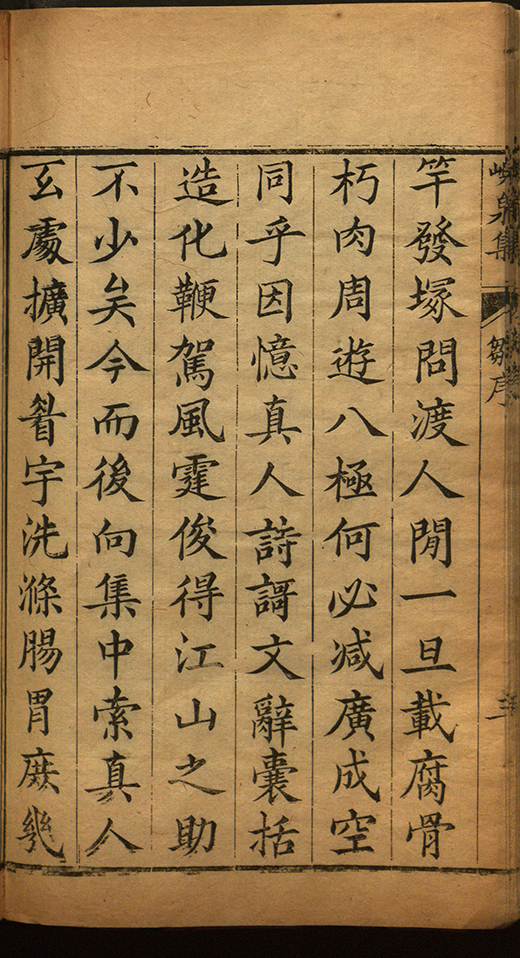 竿發塚問渡人閒一旦載腐骨
朽肉周遊八極何必减廣成空
同乎因憶真人詩謌文辭囊括
造化鞭駕風霆俊得江山之助
不少矣今而後向集中索真人
玄處擴開眢宇洗滌腸胃庶幾
鄒序
三